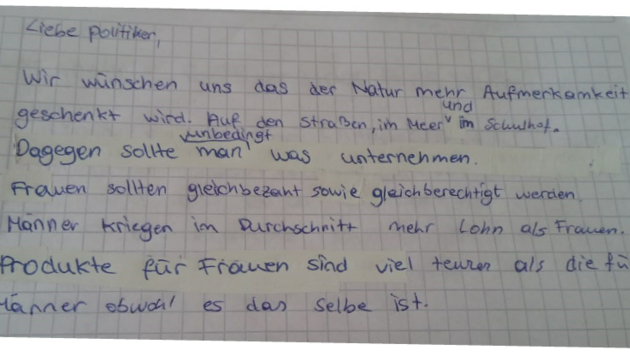 Liebe Politiker,
Wir wünschen uns das der Natur mehr Aufmerksamkeit
geschenkt wird. Auf den Straßen, im Meer und im Schulhof.
Dagegen sollte man unbedingt was unternehmen.
Frauen sollten gleichbezahlt sowie gleichberechtigt werden.
Männer kriegen im Durchschnitt mehr Lohn als Frauen.
Produkte für Frauen sind viel teurer als die fü
Männer obwohl es das selbe ist.